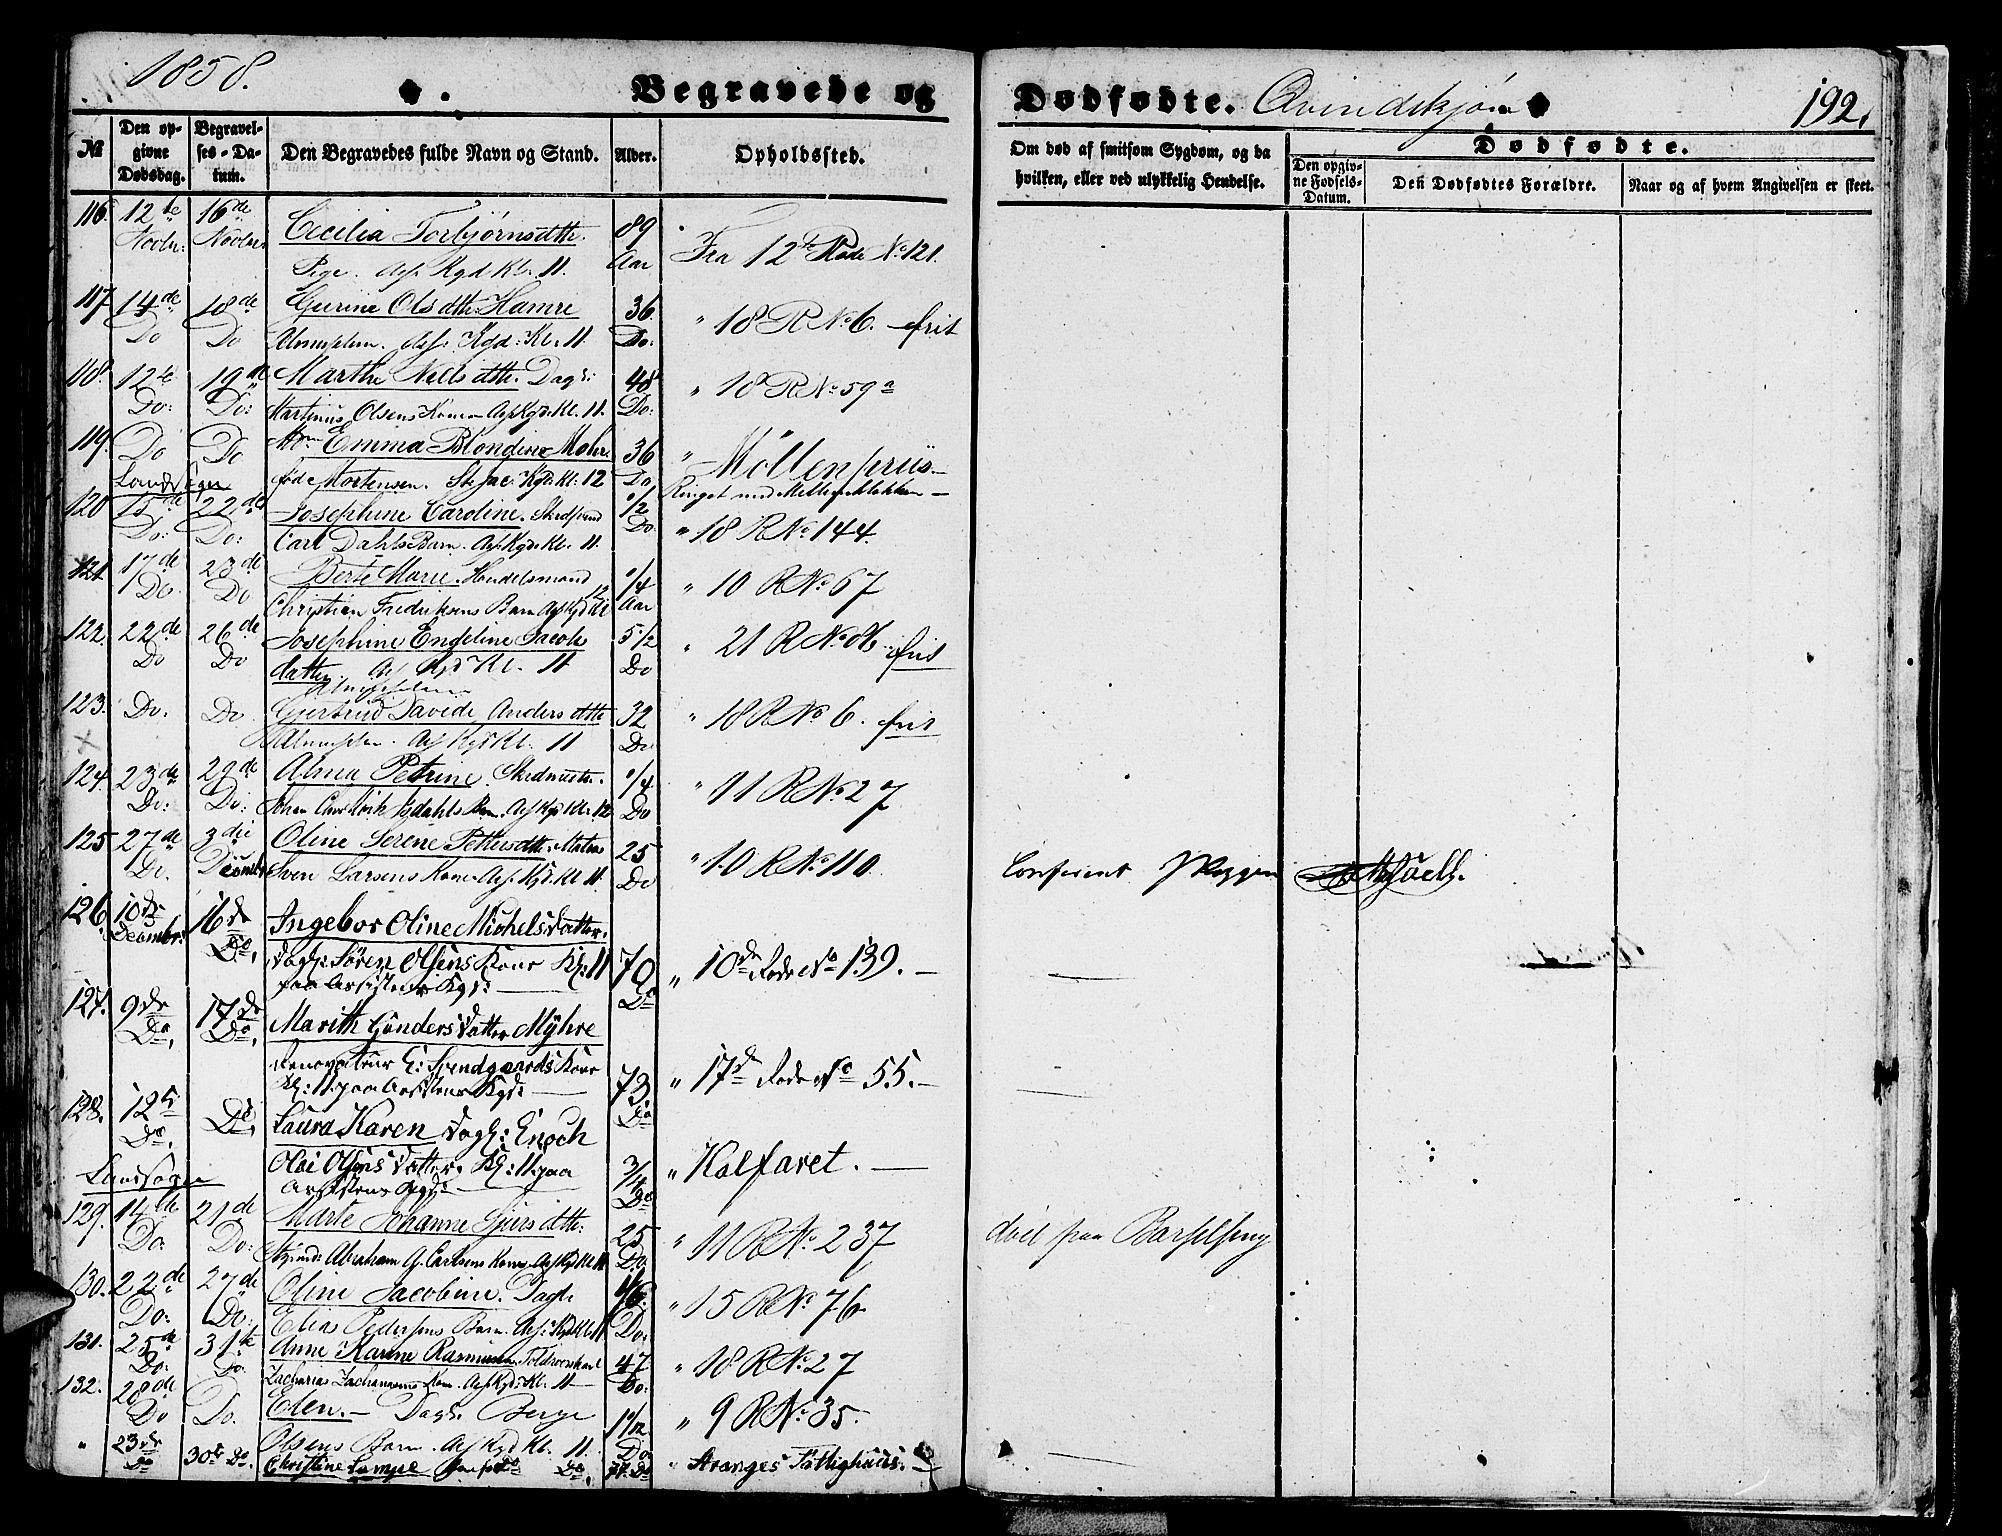 1858.
Begravede og
Dødfødte. Qvindekjøn
192.
No
Den opgivne Dødsdag.
Begravelses-Datum.
Den Begravedes fulde Navn og Stand.
Alder.
Opholdssted.
Om død af smitsom Sygdom, og da hvilken, eller ved ulykkelig Hendelse.
Dødfødte.
Den opgivne Fødsels-Datum.
Den Dødfødtes Forældre.
Naar og af hvem Angivelsen er skeet.
116. 12te 16de Cecilia Torbjørnsdttr. 89 Fra 12te Rode No 121.
Novbr: Novbr: Pige. Ass Kgd Kl. 11. Aar
117 14de 18de Gurine Olsdttr. Hamre 36 " 18 R No 6. frit
Do Do Almisselem. Ass. Kgd: Kl. 11 Do:
118. 12te 19de Marthe Nielsdttr. Dagl: 48 " 18 R No 59a
Do: Do: Martinus Olsens Kone Ass Kgd. Kl. 11. Do:
119. Do Do Emma Blondine Mohr 36 " Möllenpriis
Landsogn født Mortensen. St Jac. Kgd. Kl: 12 Do Ringet med Mellemklokken
120 15de 22de Josephine Caroline. 1/2 " 18 R No 144.
Do: Do: Carl Dahls Barn. Ass Kgd. Kl. 11. Do
121 17de 23de Berte Marie. Handelsmand 1/4 " 10 R No 67
Do Do Christian Fredriksens Barn Ass Kgd Kl 12 Aar
122. 22de 26de Josephine Engeline Jacobs 5 1/2 " 21 R No 86. frit
Do Do datter. Ass Kgd Kl. 11 Do
Almisselem
123. Do. Do Gjertrud Davide Andersdttr 32 " 18 R No 6. frit
Almisslem. Ass Kgd Kl. 11 Do
124. 23de 29de Alma Petrine. 1/4 " 11 R No 27
Do: Do: Johan Barn. Ass Kgd Kl: 12 Do
125 27de 3die Oline Serene Pettersdttr. Matros 25 " 10 R No 110
Do. December Sven Larsens Kone Ass. Kgd. Kl 11. Do
126. 10de 16de Ingebor Oline Michelsdatter.
December Do, Dagl: Søren Olsens Kone Kl: 11 70 " 10de Rode No 139.
paa Assistens Kgd: Do
127. 9de 17de Marith Gundersdatter Myhre
Do, Do, Renovatør Kone 73 " 17de Rode No 55.
Kl: 11. paa Assistens Kgd: Do
128. 12te Do, Laura Karen Dagl: Enoch
Do, Olai Olsens datter. Kl: 11. paa 3/4 " Kalfaret.
Landsogn Assistens Kgd: Do
129. 14de 21de Marte Johanne Sjursdttr. 25 " 11 R No 237 død paa Barselseng
Do. Do: Abraham G. Carlsens Kone Ass Kgd Kl 11 Do.
130. 22de 27de Oline Jacobine. Dagl. 1/6 " 15 R No 76
Do: Do: Elias Pedersens Barn. Ass: Kgd Kl 11 Do:
131. 25de 31te Anne Karine Rasmussen. 47 " 18 R No 27
Do: Do Zacharias Zachariasens Kone. Ass Kgd: Kl. 11 Do:
132. 28de Do. Elen. Dagl. Berge 1/12 " 9 R No 35.
Do Olsens Barn. Ass Kgd Kl. 11. Do
" 23de Do 30te Do. Christine Lampe Do, 77. Do " Stranges Fattighuus.